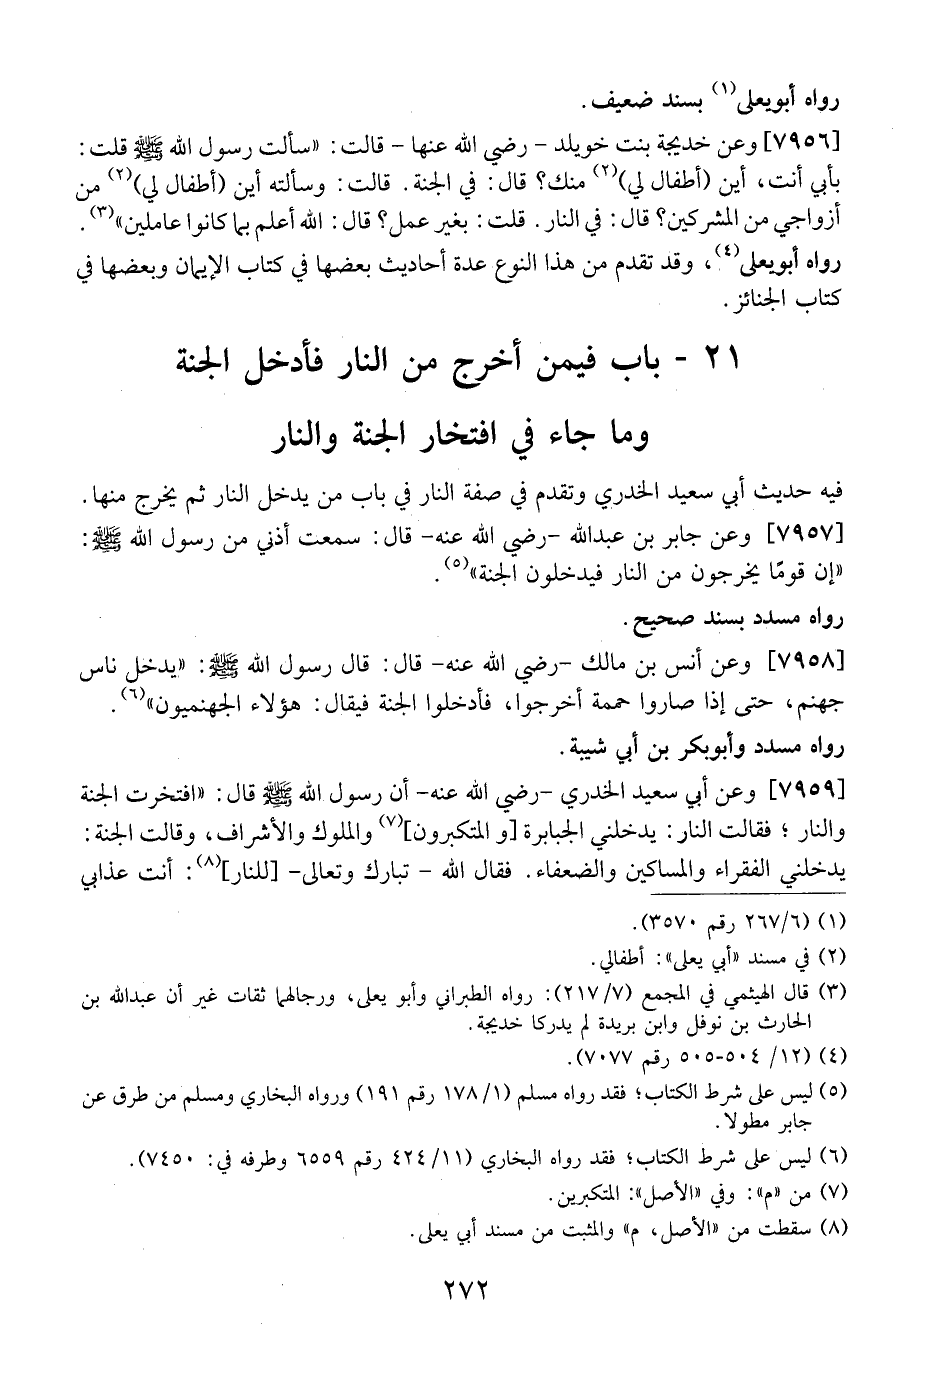 رواه أبويعلى(١) بسند ضعيف.
[٧٩٥٦] وعن خديجة بنت خويلد - رضي الله عنها - قالت: «سألت رسول الله ﷺ قلت:
بأبي أنت، أين (أطفال لي)(٢) منك؟ قال: في الجنة. قالت: وسألته أين (أطفال لي)(٢) من
أزواجي من المشركين؟ قال: في النار. قلت: بغير عمل؟ قال: الله أعلم بما كانوا عاملين»(٣).
رواه أبويعلى(٤)، وقد تقدم من هذا النوع عدة أحاديث بعضها في كتاب الإيمان وبعضها في
كتاب الجنائز.
٢١ - باب فيمن أخرج من النار فأدخل الجنة
وما جاء في افتخار الجنة والنار
فيه حديث أبي سعيد الخدري وتقدم في صفة النار في باب من يدخل النار ثم يخرج منها.
[٧٩٥٧] وعن جابر بن عبدالله -رضي الله عنه- قال: سمعت أذني من رسول الله ﷺ:
«إن قومًا يخرجون من النار فيدخلون الجنة»(٥).
رواه مسدد بسند صحيح.
[٧٩٥٨] وعن أنس بن مالك -رضي الله عنه- قال: قال رسول الله ﷺ: «يدخل ناس
جهنم، حتى إذا صاروا حممة أخرجوا، فأدخلوا الجنة فيقال: هؤلاء الجهنميون»(٦).
رواه مسدد وأبوبكر بن أبي شيبة.
[٧٩٥٩] وعن أبي سعيد الخدري -رضي الله عنه- أن رسول الله ﷺ قال: «افتخرت الجنة
والنار؛ فقالت النار: يدخلني الجبابرة [و المتكبرون](٧) والملوك والأشراف، وقالت الجنة:
يدخلني الفقراء والمساكين والضعفاء. فقال الله - تبارك وتعالى- [للنار](٨): أنت عذابي
(١) (٢٦٧/٦ رقم ٣٥٧٠).
(٢) في مسند «أبي يعلى»: أطفالي.
(٣) قال الهيثمي في المجمع (٢١٧/٧): رواه الطبراني وأبو يعلى، ورجالهما ثقات غير أن عبدالله بن
الحارث بن نوفل وابن بريدة لم يدركا خديجة.
(٤) (١٢/ ٥٠٤-٥٠٥ رقم ٧٠٧٧).
(٥) ليس على شرط الكتاب؛ فقد رواه مسلم (١٧٨/١ رقم ١٩١) ورواه البخاري ومسلم من طرق عن
جابر مطولا.
(٦) ليس على شرط الكتاب؛ فقد رواه البخاري (٤٢٤/١١ رقم ٦٥٥٩ وطرفه في: ٧٤٥٠).
(٧) من «م»: وفي «الأصل»: المتكبرين.
(٨) سقطت من «الأصل، م» والمثبت من مسند أبي يعلى.
٢٧٢